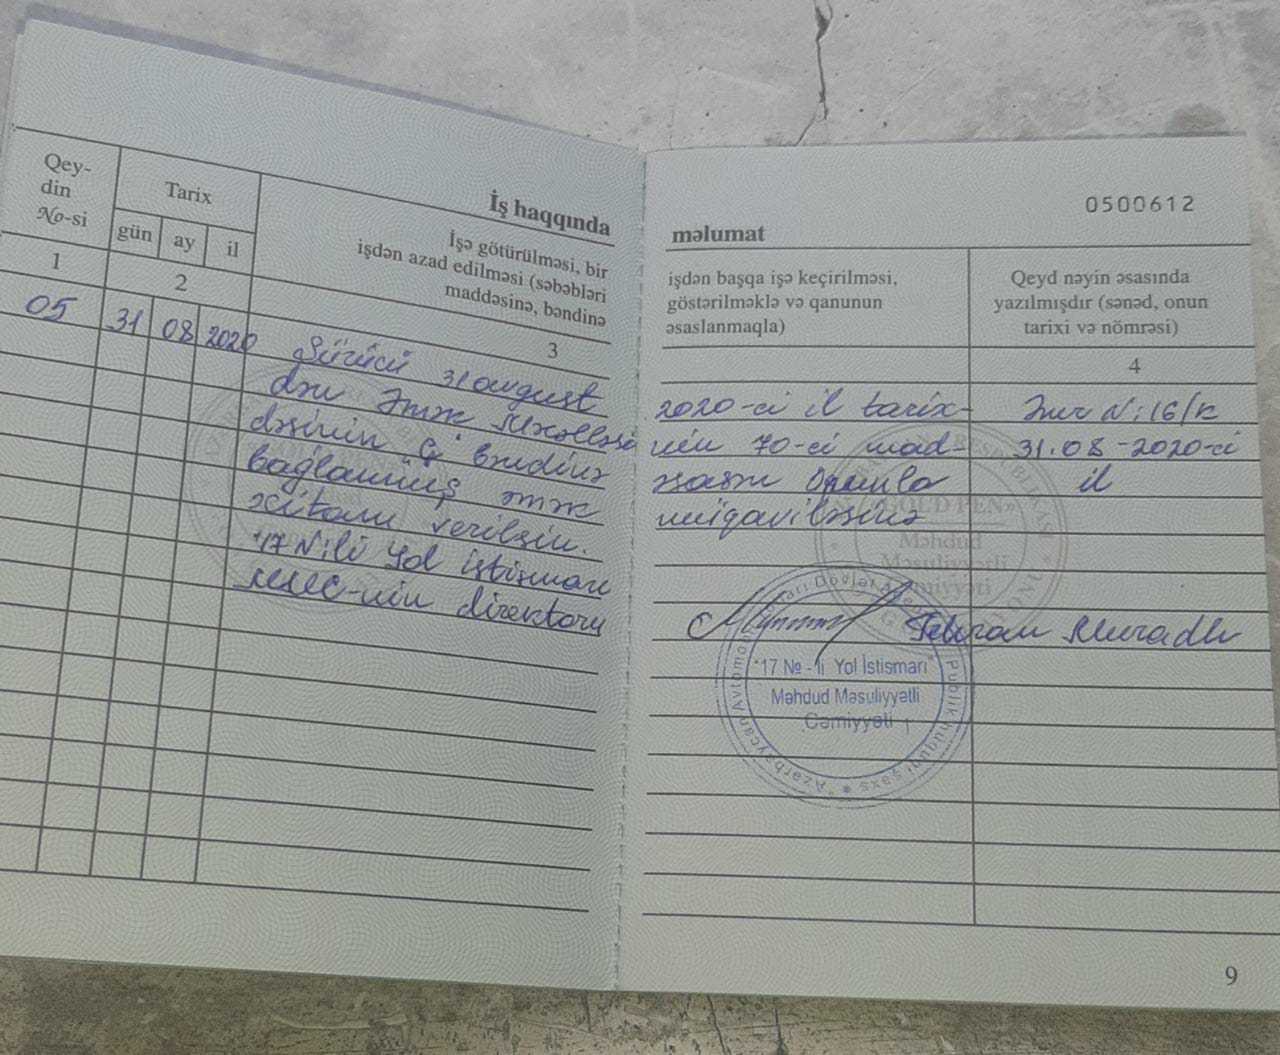 Qey-
din
No-si
Tarix
gün ay il
İş haqqında
İşə götürülməsi, bir
işdən azad edilməsi (səbəbləri
maddəsinə, bəndinə
1
2
3
05 31 08 2020 Sürücü 31 avgust
dən Əmək Məcəlləsi
dəsinin Ç bəndinə
bağlanmış əmək
xitam verilsin.
"17 N:li Yol istismarı
MMC-nin direktoru
0500612
məlumat
işdən başqa işə keçirilməsi,
göstərilməklə və qanunun
əsaslanmaqla)
Qeyd nəyin əsasında
yazılmışdır (sənəd, onun
tarixi və nömrəsi)
4
2020-ci il tarix- Əmr N:16/K
nin 70-ci mad- 31.08-2020-ci
əsasən onunla il
müqaviləsinə
Tehran Muradlı
"17 № - li Yol İstismarı"
Məhdud Məsuliyyətli
Cəmiyyəti
Azərbaycan Avtomobil Yolları Dövlət Agentliyi Publik hüquqi şəxs
«GOLD PEN»
Məhdud
Məsuliyyətli
Cəmiyyəti
9